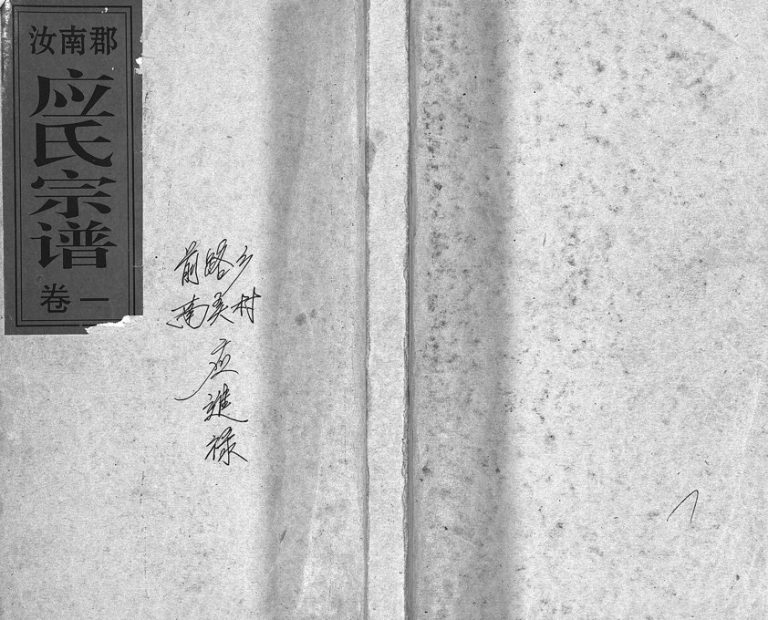 汝南郡
应氏宗谱
卷一
前路乡
南美村
应進禄